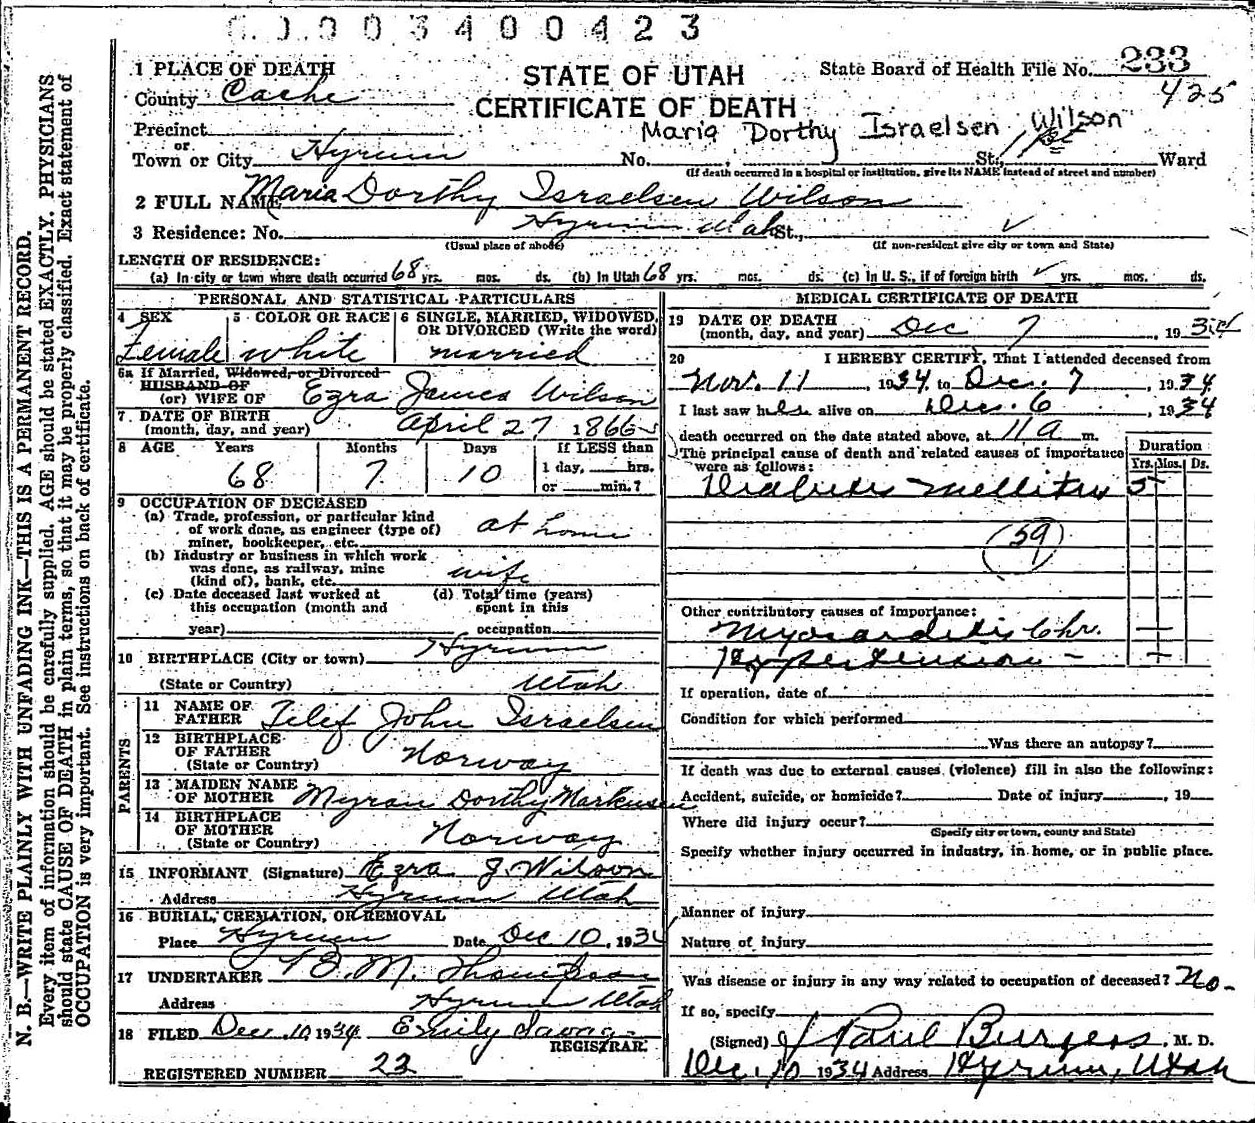 6 1 0 0 3 4 0 0 4 2 3
233
425
1 PLACE OF DEATH
STATE OF UTAH
State Board of Health File No.
County Cache
CERTIFICATE OF DEATH
Maria Dorthy Israelsen Wilson
Precinct
or
Town or City Hyrum No. St., 1st Ward
(If death occurred in a hospital or institution, give its NAME instead of street and number)
2 FULL NAME Maria Dorthy Israelsen Wilson
3 Residence: No. Hyrum Utah St.,
(Usual place of abode) (If non-resident give city or town and State)
LENGTH OF RESIDENCE:
(a) In city or town where death occurred 68 yrs. mos. ds. (b) In Utah 68 yrs. mos. ds. (c) In U. S., if of foreign birth yrs. mos. ds.
PERSONAL AND STATISTICAL PARTICULARS
4 SEX Female
5 COLOR OR RACE white
6 SINGLE, MARRIED, WIDOWED, OR DIVORCED (Write the word)
married
6a If Married, Widowed, or Divorced
HUSBAND OF
(or) WIFE OF Ezra James Wilson
7 DATE OF BIRTH
(month, day, and year) April 27 1866
8 AGE Years Months Days If LESS than
68 7 10 1 day, hrs.
or min.?
9 OCCUPATION OF DECEASED
(a) Trade, profession, or particular kind
of work done, as engineer (type of)
miner, bookkeeper, etc. at home
(b) Industry or business in which work
was done, as railway, mine
(kind of), bank, etc. wife
(c) Date deceased last worked at
this occupation (month and
year)
(d) Total time (years)
spent in this
occupation
10 BIRTHPLACE (City or town) Hyrum
(State or Country) Utah
PARENTS
11 NAME OF
FATHER Tilef John Israelsen
12 BIRTHPLACE
OF FATHER Norway
(State or Country)
13 MAIDEN NAME
OF MOTHER Myran Dorthy Markusen
14 BIRTHPLACE
OF MOTHER
(State or Country) Norway
15 INFORMANT (Signature) Ezra J. Wilson
Address Hyrum Utah
16 BURIAL, CREMATION, OR REMOVAL
Place Hyrum Date Dec 10, 1934
17 UNDERTAKER M. Thompson
Address Hyrum Utah
18 FILED Dec 10, 1934 Emily Savage
REGISTRAR.
REGISTERED NUMBER 23
MEDICAL CERTIFICATE OF DEATH
19 DATE OF DEATH
(month, day, and year) Dec 7, 1934
20 I HEREBY CERTIFY, That I attended deceased from
Nov. 11, 1934 to Dec. 7, 1934
I last saw her alive on Dec. 6, 1934
death occurred on the date stated above, at 11 a m.
The principal cause of death and related causes of importance
were as follows:
Duration
Yrs. Mos. Ds.
Diabetes Mellitus 5
59
Other contributory causes of importance:
Myocarditis Chr. —
Hypertension - —
If operation, date of
Condition for which performed
Was there an autopsy?
If death was due to external causes (violence) fill in also the following:
Accident, suicide, or homicide? Date of injury , 19
Where did injury occur?
(Specify city or town, county and State)
Specify whether injury occurred in industry, in home, or in public place.
Manner of injury
Nature of injury
Was disease or injury in any way related to occupation of deceased? No-
If so, specify
(Signed) J Paul Burgess, M. D.
Dec. 10 1934 Address Hyrum, Utah
N. B.—WRITE PLAINLY WITH UNFADING INK—THIS IS A PERMANENT RECORD.
Every item of information should be carefully supplied. AGE should be stated EXACTLY. PHYSICIANS
should state CAUSE OF DEATH in plain terms, so that it may be properly classified. Exact statement of
OCCUPATION is very important. See instructions on back of certificate.